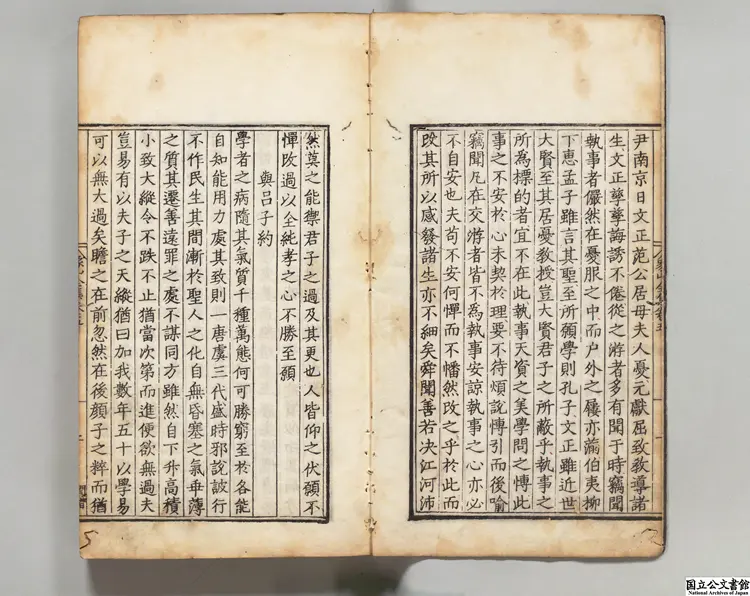 尹南京日文正范公居母夫人憂元獻屈致教導諸
生文正孳孳誨誘不倦從之游者多有聞于時竊聞
執事者儼然在憂服之中而户外之屨亦滿伯夷柳
下惠孟子雖言其聖至所願學則孔子文正雖近世
大賢至其居憂教授豈大賢君子之所蔽乎執事之
所為標的者宜不在此執事天資之美學問之博此
事之不安於心未契於理要不待煩說博引而後喻
竊聞凡在交游者皆不為執事安諒執事之心亦必
不自安也夫苟不安何憚而不幡然改之乎於此而
改其所以感發諸生亦不細矣舜聞善若决江河沛
然莫之能禦君子之過及其更也人皆仰之伏願不
憚改過以全純孝之心不勝至願
與呂子約
學者之病隨其氣質千種萬態何可勝窮至於各能
自知能用力處其致則一唐虞三代盛時邪說詖行
不作民生其間漸於聖人之化自無昏塞之氣乖薄
之質其遷善遠罪之處不謀同方雖然自下升高積
小致大縱令不跌不止猶當次第而進便欲無過夫
豈易有以夫子之天縱猶曰加我數年五十以學易
可以無大過矣瞻之在前忽然在後顏子之粹而猶
国立公文書館
National Archives of Japan